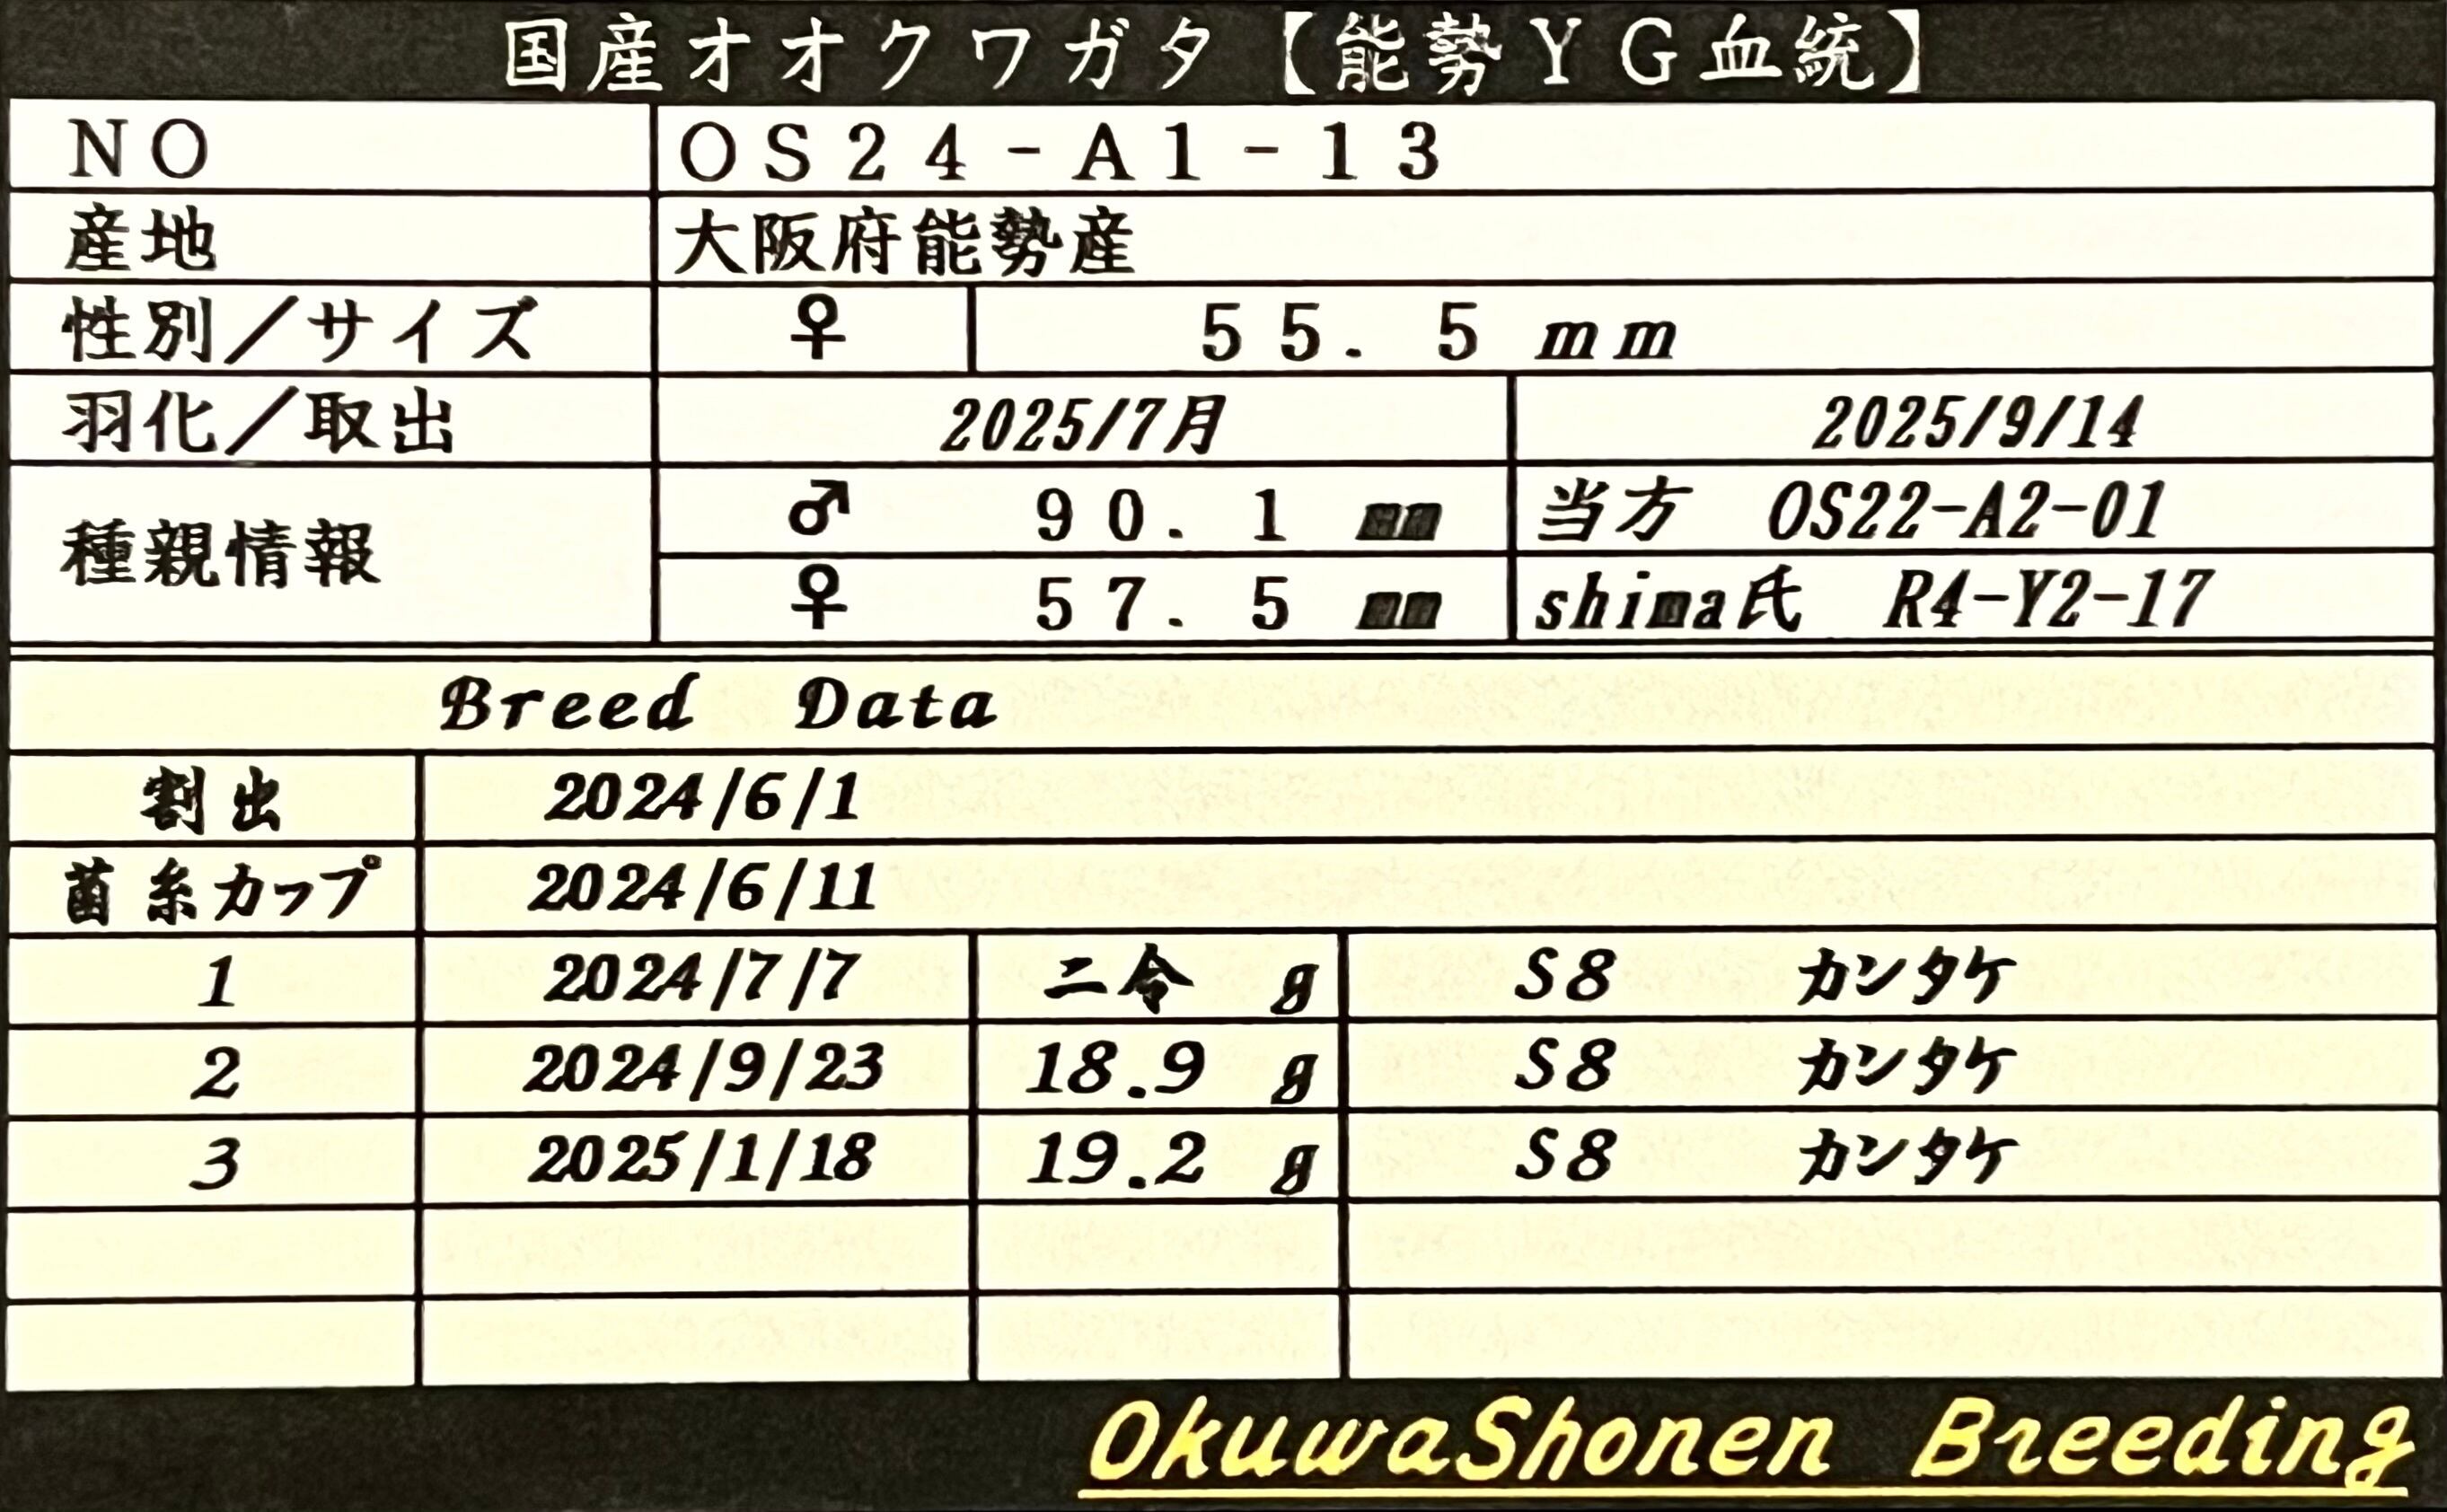 国産オオクワガタ【能勢ＹＧ血統】
ＮＯ ＯＳ２４－Ａ１－１３
産地 大阪府能勢産
性別／サイズ ♀ ５５．５ mm
羽化／取出 2025/7月 2025/9/14
種親情報
♂ ９０．１ ㎜ 当方 OS22-A2-01
♀ ５７．５ ㎜ shima氏 R4-Y2-17
Breed Data
割出 2024/6/1
菌糸カップ 2024/6/11
1 2024/7/7 二令 g S8 カンタケ
2 2024/9/23 18.9 g S8 カンタケ
3 2025/1/18 19.2 g S8 カンタケ
OkuwaShonen Breeding